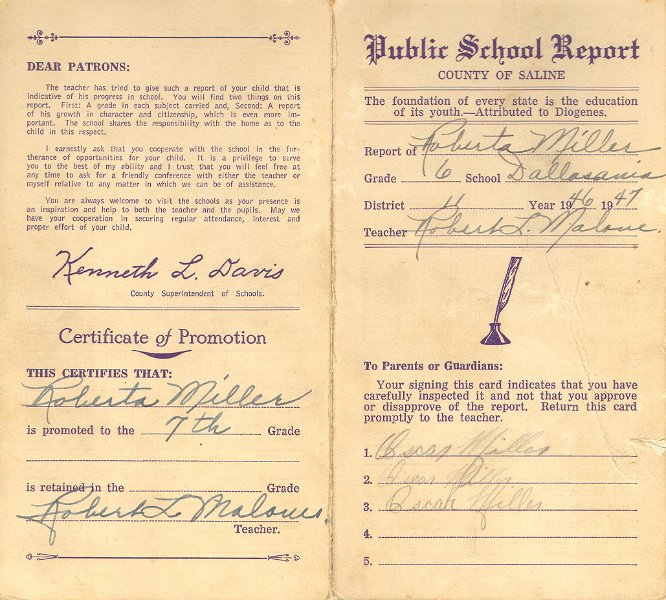 DEAR PATRONS:
The teacher has tried to give such a report of your child that is
indicative of his progress in school. You will find two things on this
report. First: A grade in each subject carried and, Second: A report
of his growth in character and citizenship, which is even more im-
portant. The school shares the responsibility with the home as to the
child in this respect.
I earnestly ask that you cooperate with the school in the fur-
therance of opportunities for your child. It is a privilege to serve
you to the best of my ability and I trust that you will feel free at
any time to ask for a friendly conference with either the teacher or
myself relative to any matter in which we can be of assistance.
You are always welcome to visit the schools as your presence is
an inspiration and help to both the teacher and the pupils. May we
have your cooperation in securing regular attendance, interest and
proper effort of your child.
Kenneth L. Davis
County Superintendent of Schools.
Certificate of Promotion
THIS CERTIFIES THAT:
Roberta Miller
is promoted to the 7th Grade
is retained in the Grade
Robert L. Malone.
Teacher.
Public School Report
COUNTY OF SALINE
The foundation of every state is the education
of its youth.—Attributed to Diogenes.
Report of Roberta Miller
Grade 6 School Dallasania
District 11 Year 1946 1947
Teacher Robert L. Malone.
To Parents or Guardians:
Your signing this card indicates that you have
carefully inspected it and not that you approve
or disapprove of the report. Return this card
promptly to the teacher.
1. Oscar Miller
2. Oscar Miller
3. Oscar Miller
4.
5.